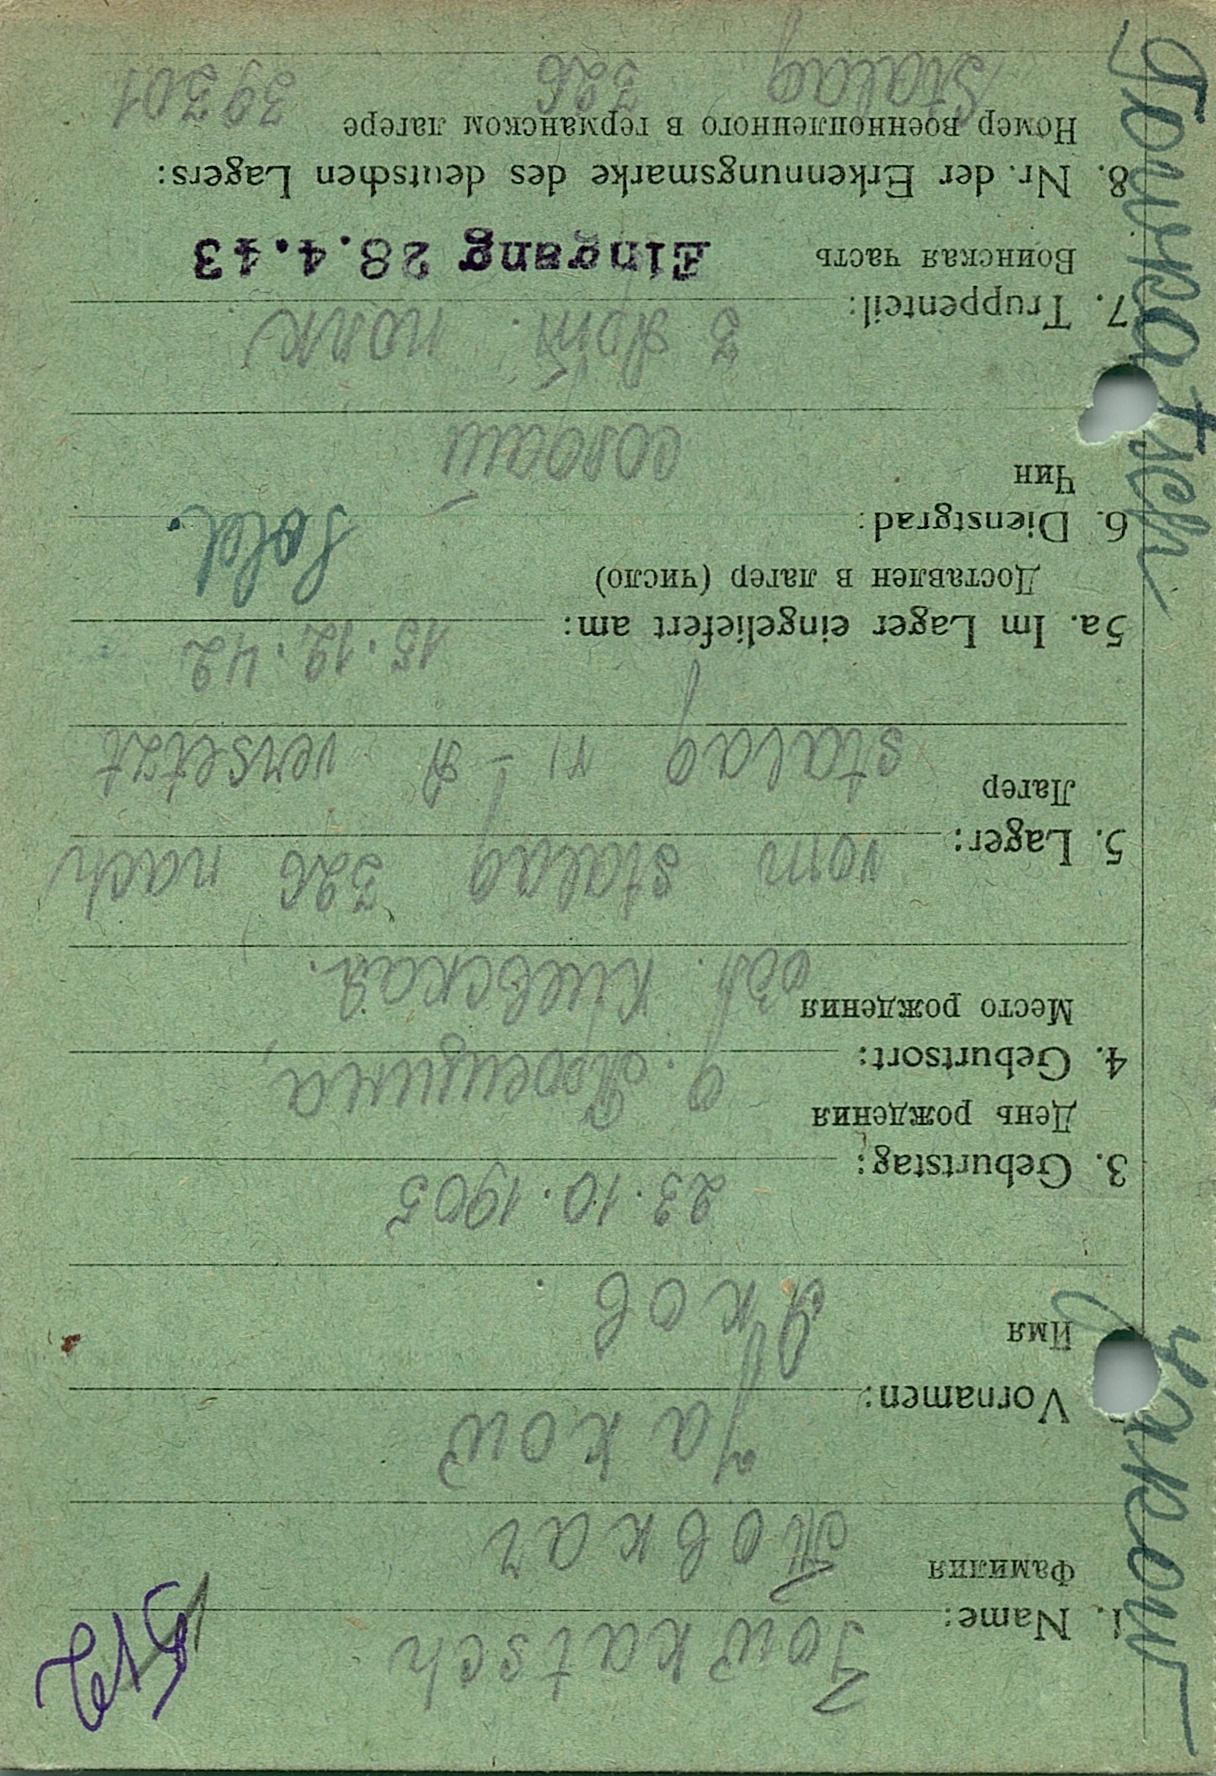 Towkatsch Jakow
1. Name: Towkatsch
Фамилия Товкач
Vornamen: Jakow
Имя Яков.
3. Geburtstag: 23.10.1905
День рождения
4. Geburtsort: д. Троещина,
Место рождения обл. Киевская.
5. Lager: vom stalag 326 nach
Лагер stalag VI-A versetzt
5a. Im Lager eingeliefert am: 15.12.42
Доставлен в лагер (число)
6. Dienstgrad: Sold.
Чин солдат
7. Truppenteil: 3 полк
Воинская часть Eingang 28.4.43
8. Nr. der Erkennungsmarke des deutschen Lagers:
Номер военнопленного в германском лагере
Stalag 326 39301